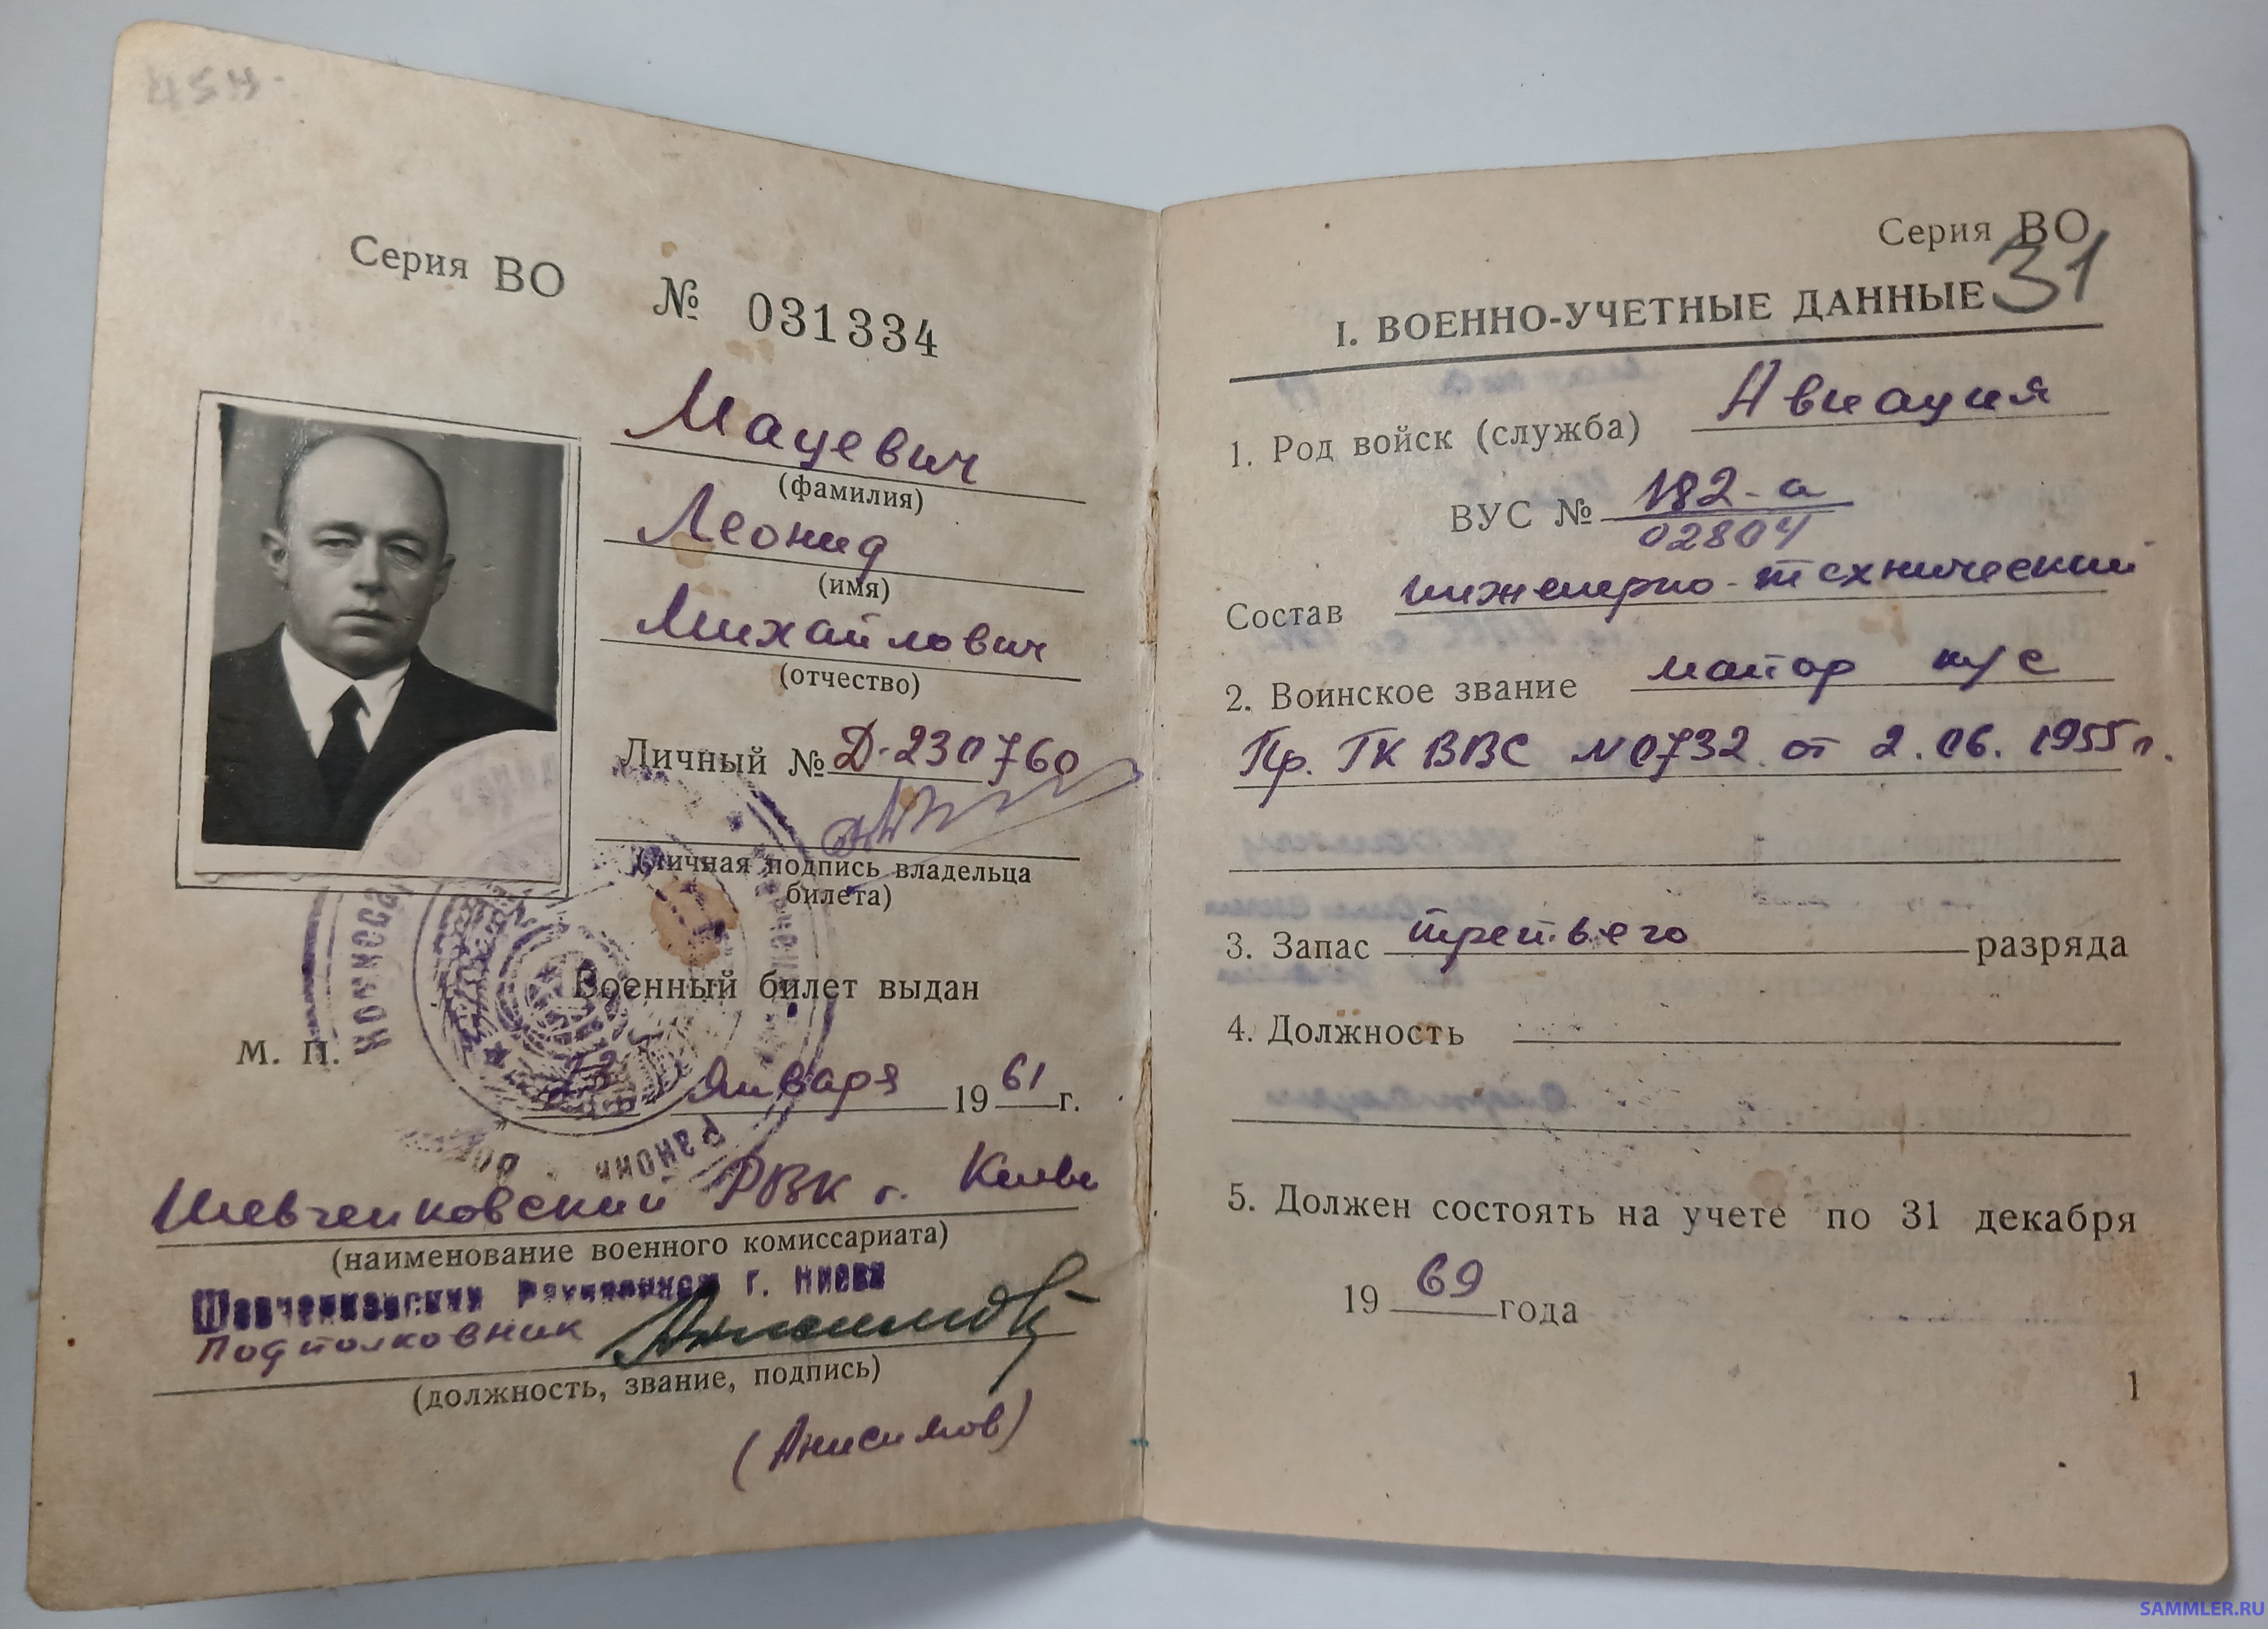 45н.
Серия ВО № 031334
Мацевич
(фамилия)
Леонид
(имя)
Михайлович
(отчество)
Личный № Д-230760
(личная подпись владельца
билета)
Военный билет выдан
М. П.
января 1961 г.
Шевченковский РВК г. Киева
(наименование военного комиссариата)
Шевченковский г. Киева
Подполковник
(должность, звание, подпись)
(Анисимов)
Серия ВО
31
I. ВОЕННО-УЧЕТНЫЕ ДАННЫЕ
1. Род войск (служба) Авиация
ВУС № 182-а
02804
Состав инженерно-технический
2. Воинское звание майор
Пр. ГК ВВС №0732 от 2.06.1955г.
3. Запас третьего разряда
4. Должность
5. Должен состоять на учете по 31 декабря
1969 года
1
SAMMLER.RU